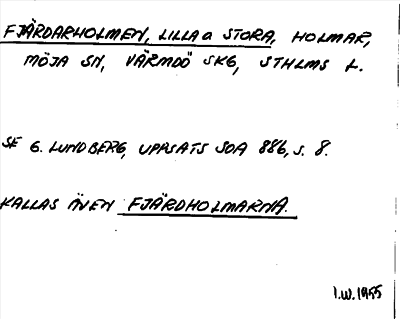 FJÄRDARHOLMEN, LILLA O STORA, HOLMAR,
MÖJA SN, VÄRMDÖ SKG, STHLMS L.
SE G. LUNDBERG, UPPSATS SOA 886, S. 8.
KALLAS ÄVEN FJÄRDHOLMARNA.
I.W. 1955